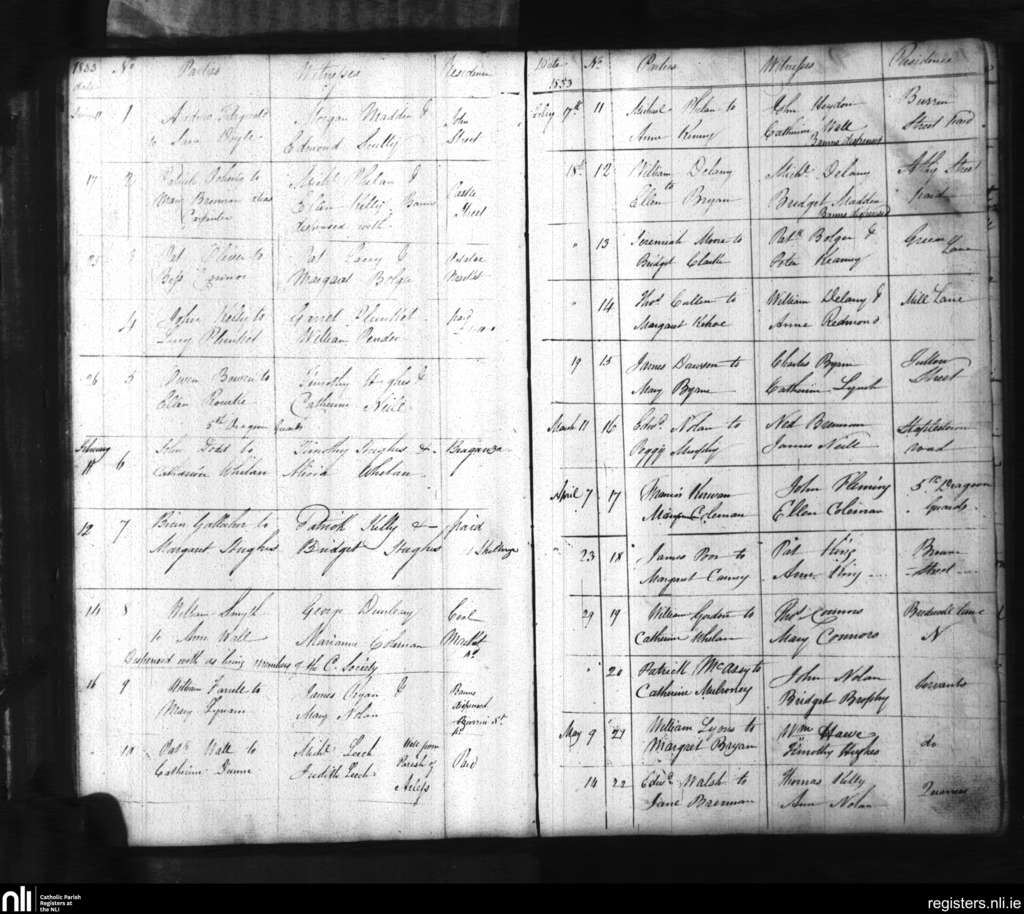 1853 No Parties Witnesses Residence
date
1 Andrew Fitzgerald Morgan Madden & John
to Sara Doyle Edmond Scully Street
17 2 Patrick to Michl Phelan & Castle
Mary Brennan alias Ellen Kelly Banns Street
Carpenter dispensed with
Pat to Pat &
Bess Connor Margaret Bolger Market
4 John to Garret Plunket paid
Lucy Plunket William Pender
26 5 Owen Bowen to Timothy Hughes &
Ellen Catherine Neill
5th Dragoon Guards
February John Dods to Timothy Hughes & Braganza
6 Catherine Whelan Whelan
12 7 Brien Gallaher to Patrick Kelly & paid
Margaret Hughes Bridget Hughes Shillings
14 8 William Smyth George Dunleavy Coal
to Ann Wall Marianne Coleman Market
Dispensed with as being members of the C. Society
16 9 William Farrell to James Ryan & Banns
Mary Lynam Mary Nolan dispensed
Burrin St
10 Patk Wall to Michl Leech Wall from Paid
Catherine Dunne Judith Leech Parish of
Arless
Date No Parties Witnesses Residence
1853
Feby 17th 11 Michael Phelan to John Heydon Burrin
Anne Kenny Catherine Wall Street paid
Banns dispensed
18th 12 William Delany Michl Delany Athy Street
to
Ellen Bryan Bridget Madden paid
Banns dispensed
" 13 Jeremiah Moore to Patk Bolger & Green
Bridget Clarke Peter Kearney Lane
" 14 Thos Cullen to William Delany & Mill Lane
Margaret Kehoe Anne Redmond
19 15 James Dawson to Charles Byrne Tullow
Mary Byrne Catherine Lynch Street
March 11 16 Edwd Nolan to Ned Brennan Staplestown
Peggy Murphy James Neill road
April 7 17 Francis Kirwan John Fleming 5th Dragoon
Mary Coleman Ellen Coleman Guards
" 23 18 James Poor to Pat King Brown
Margaret Carney Anne King Street
29 19 William Gordon to Thos Connors Bridewell Lane
Catherine Whelan Mary Connors N
" 20 Patrick McAssy to John Nolan Servants
Catherine Mulroney Bridget Brophy
May 9 21 William Lyons to Wm Hawe do
Margret Bryan Timothy Hughes
14 22 Edwd Walsh to Thomas Kelly Quarries
Jane Brennan Ann Nolan
nli Catholic Parish
Registers at
the NLI
registers.nli.ie